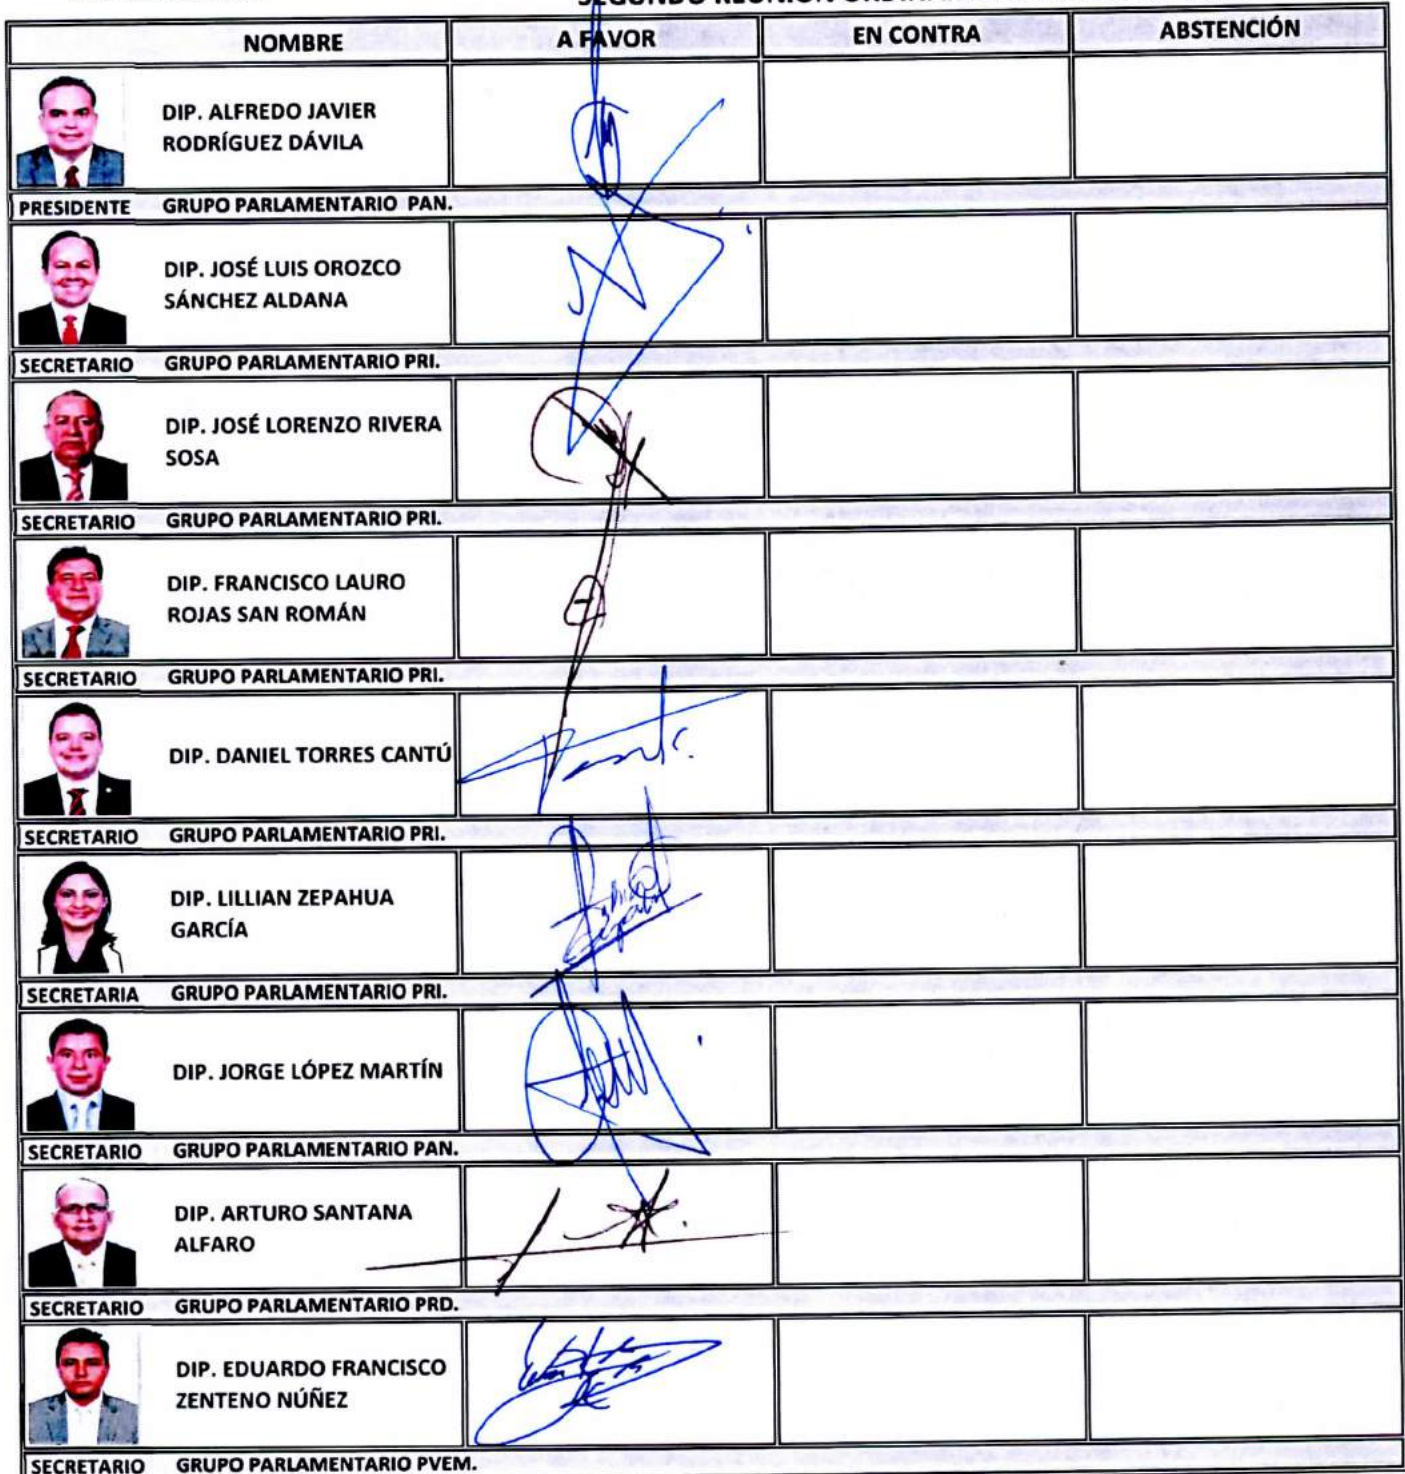 NOMBRE A FAVOR EN CONTRA ABSTENCIÓN
DIP. ALFREDO JAVIER
RODRÍGUEZ DÁVILA
PRESIDENTE GRUPO PARLAMENTARIO PAN.
DIP. JOSÉ LUIS OROZCO
SÁNCHEZ ALDANA
SECRETARIO GRUPO PARLAMENTARIO PRI.
DIP. JOSÉ LORENZO RIVERA
SOSA
SECRETARIO GRUPO PARLAMENTARIO PRI.
DIP. FRANCISCO LAURO
ROJAS SAN ROMÁN
SECRETARIO GRUPO PARLAMENTARIO PRI.
DIP. DANIEL TORRES CANTÚ
SECRETARIO GRUPO PARLAMENTARIO PRI.
DIP. LILLIAN ZEPAHUA
GARCÍA
SECRETARIA GRUPO PARLAMENTARIO PRI.
DIP. JORGE LÓPEZ MARTÍN
SECRETARIO GRUPO PARLAMENTARIO PAN.
DIP. ARTURO SANTANA
ALFARO
SECRETARIO GRUPO PARLAMENTARIO PRD.
DIP. EDUARDO FRANCISCO
ZENTENO NÚÑEZ
SECRETARIO GRUPO PARLAMENTARIO PVEM.